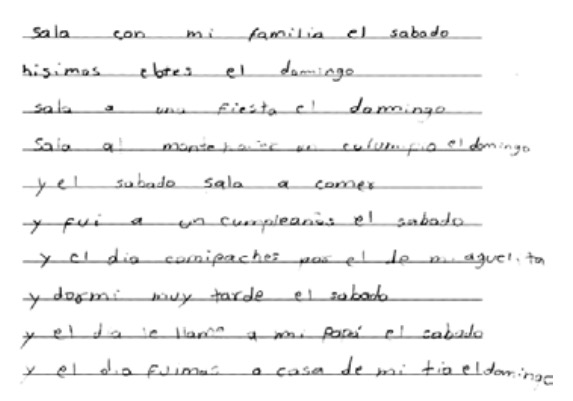 sala con mi familia el sabado
hisimos ebtes el domingo
sala a una fiesta el dommingo
Sala al monte hacer un columpio el domingo
y el sabado sala a comer
y fui a un cumpleanos el sabado
y el dia comipaches por el de mi aguelita
y dormi muy tarde el sabado
y el dia le llame a mi papá el sabado
y el dia fuimos a casa de mi tia el domingo